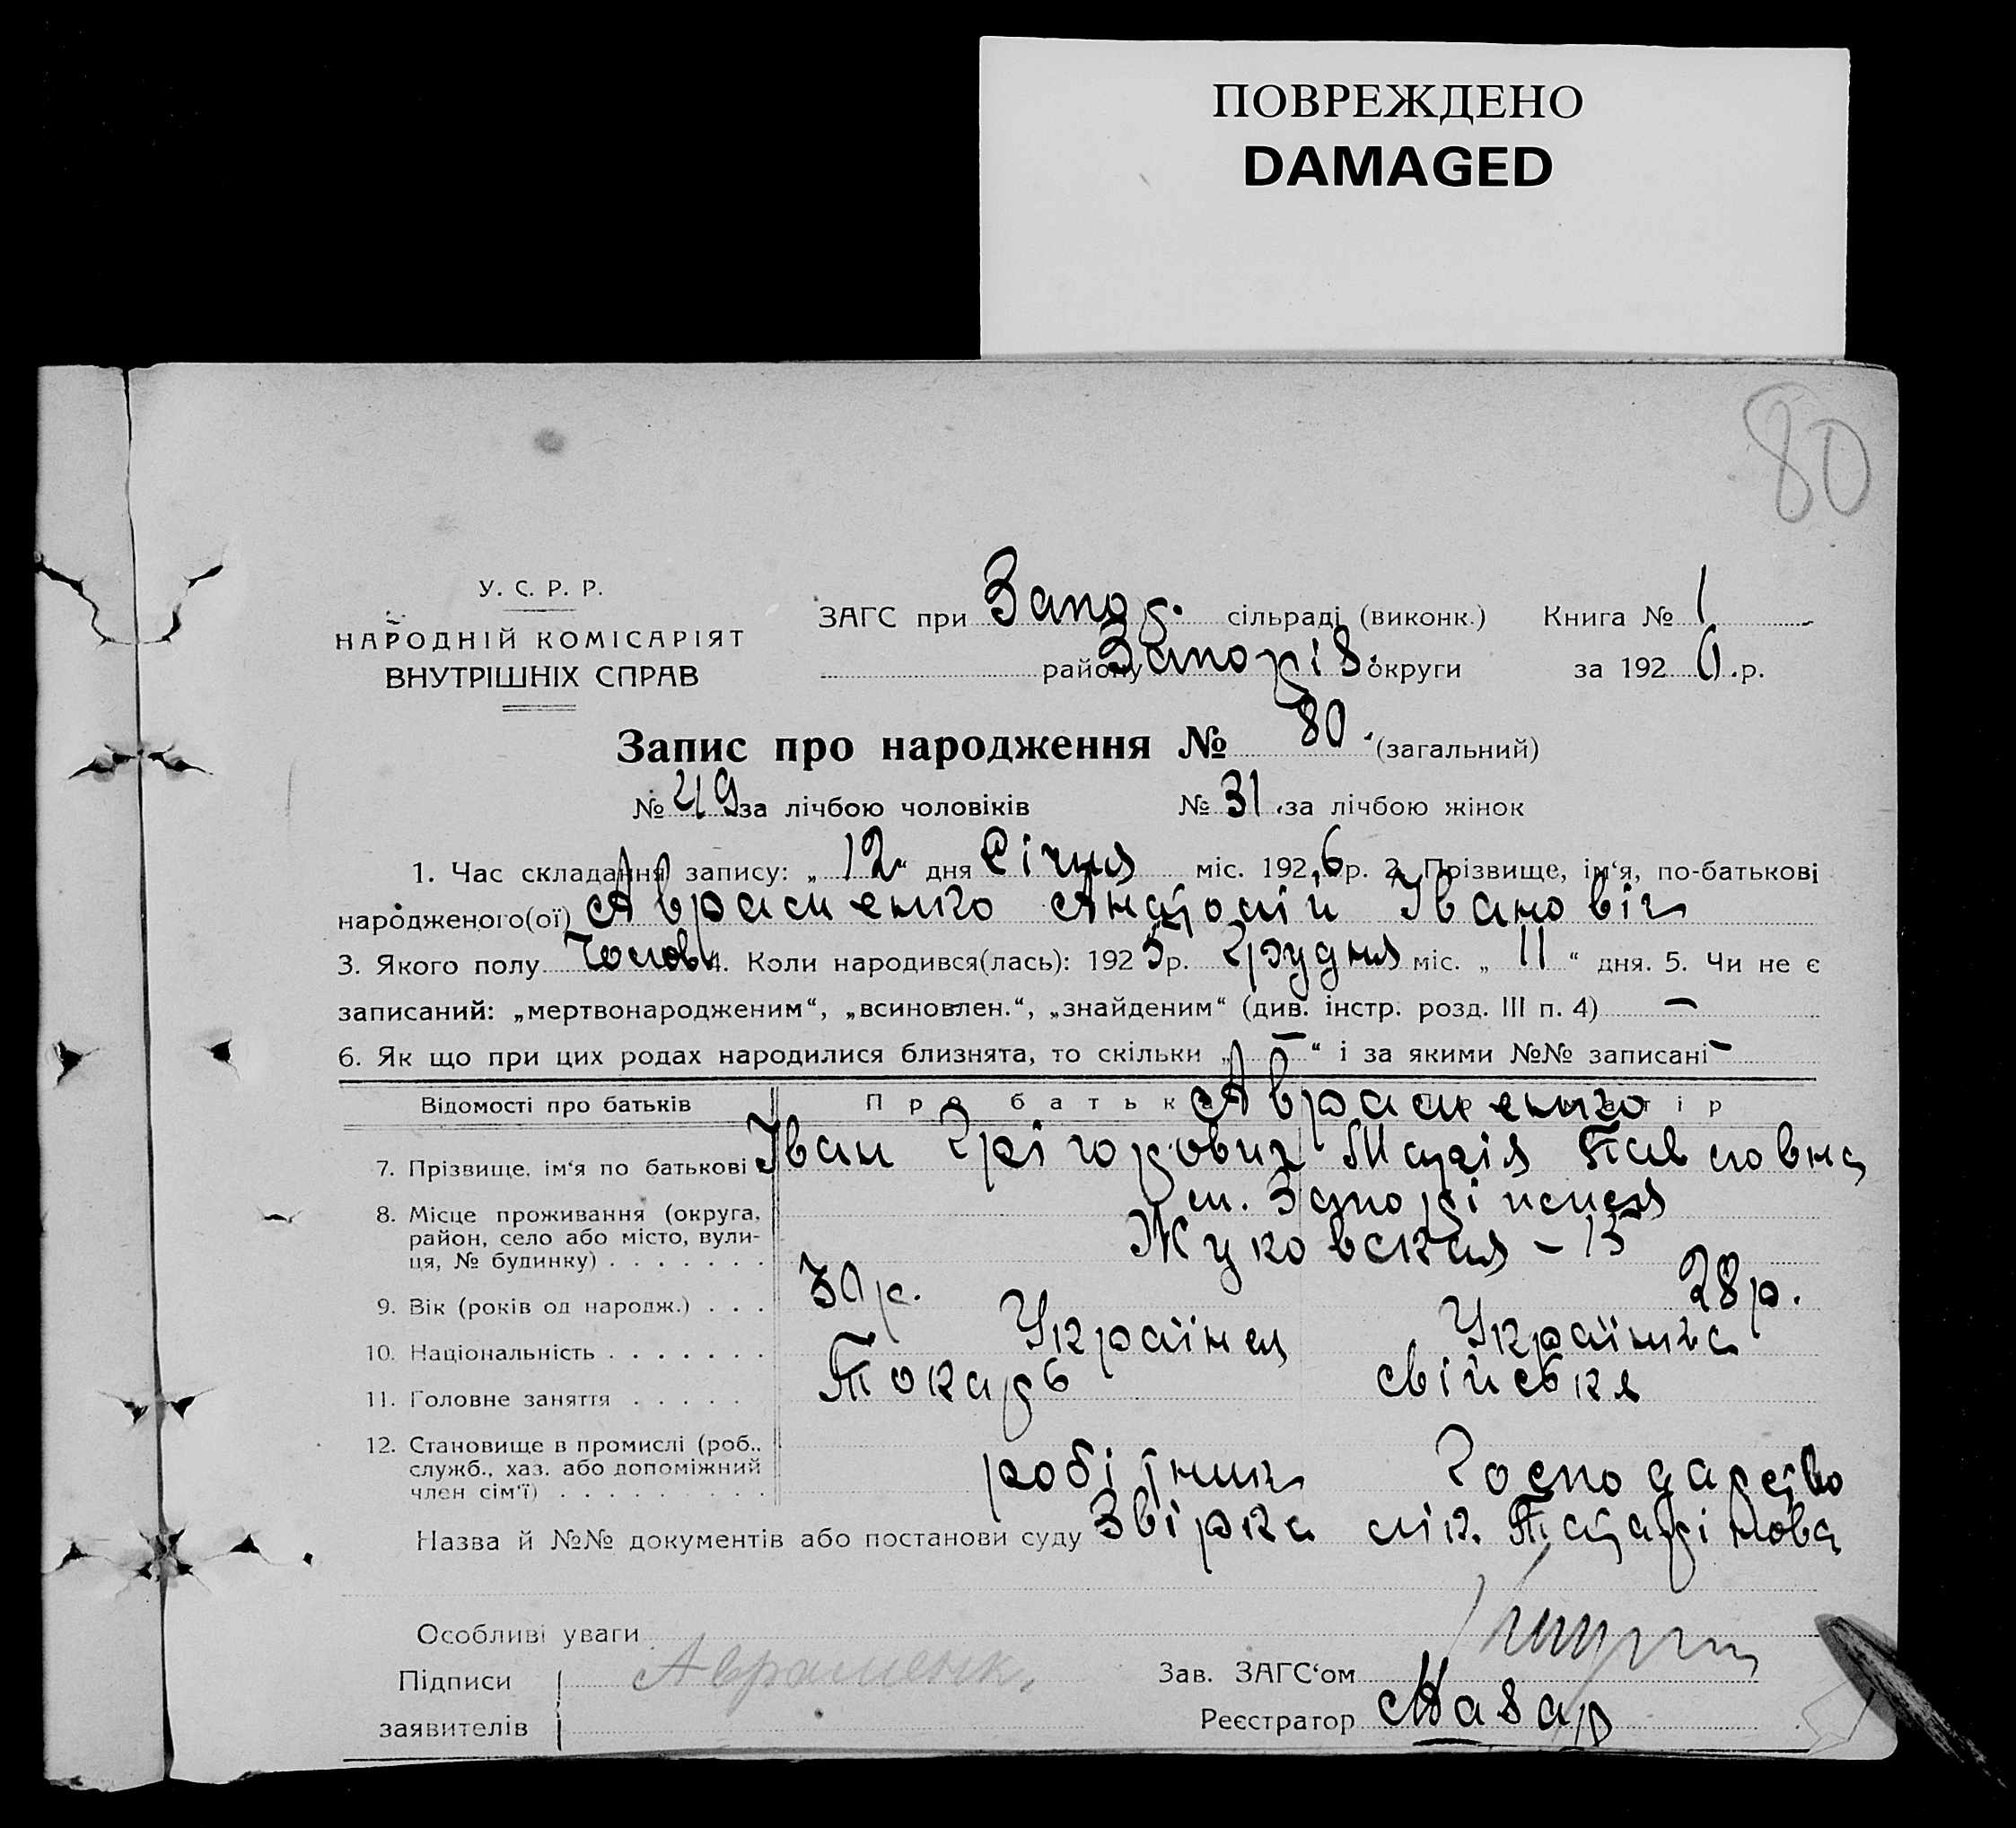 ПОВРЕЖДЕНО
DAMAGED
80
У. С. Р. Р.
НАРОДНІЙ КОМІСАРІЯТ
ВНУТРІШНІХ СПРАВ
ЗАГС при Запор. сільраді (виконк.) Книга № 1
району Запоріз. округи за 1926.р.
Запис про народження № 80. (загальний)
№ 49 за лічбою чоловіків № 31 за лічбою жінок
1. Час складання запису: „12“ дня Січня міс. 1926 р. 2. Прізвище, ім'я, по-батькові
народженого(ої) Авраменко Анатолій Івановіч
3. Якого полу Чолов. 4. Коли народився(лась): 1925 р. Грудня міс. „11“ дня. 5. Чи не є
записаний: „мертвонародженим“, „всиновлен.“, „знайденим“ (див. інстр. розд. III п. 4) —
6. Як що при цих родах народилися близнята, то скільки „—“ і за якими №№ записані —
Відомості про батьків Про батька Авраменко матір
7. Прізвище, ім'я по батькові Іван Грігорович Марія Павловна
8. Місце проживання (округа, м. Запоріжжя
район, село або місто, вули- Жуковская – 15
ця, № будинку) . . . . . . .
9. Вік (років од народж.) . . . 30 р. 28 р.
10. Національність . . . . . . . Українец Українка
11. Головне заняття . . . . . Токарь свійське
12. Становище в промислі (роб.,
служб., хаз. або допоміжний робітник Господарство
член сім'ї) . . . . . . . . .
Назва й №№ документів або постанови суду Звірка лік. Татарінова
Особливі уваги
Підписи Авраменк. Зав. ЗАГС'ом
заявителів Реєстратор Назар